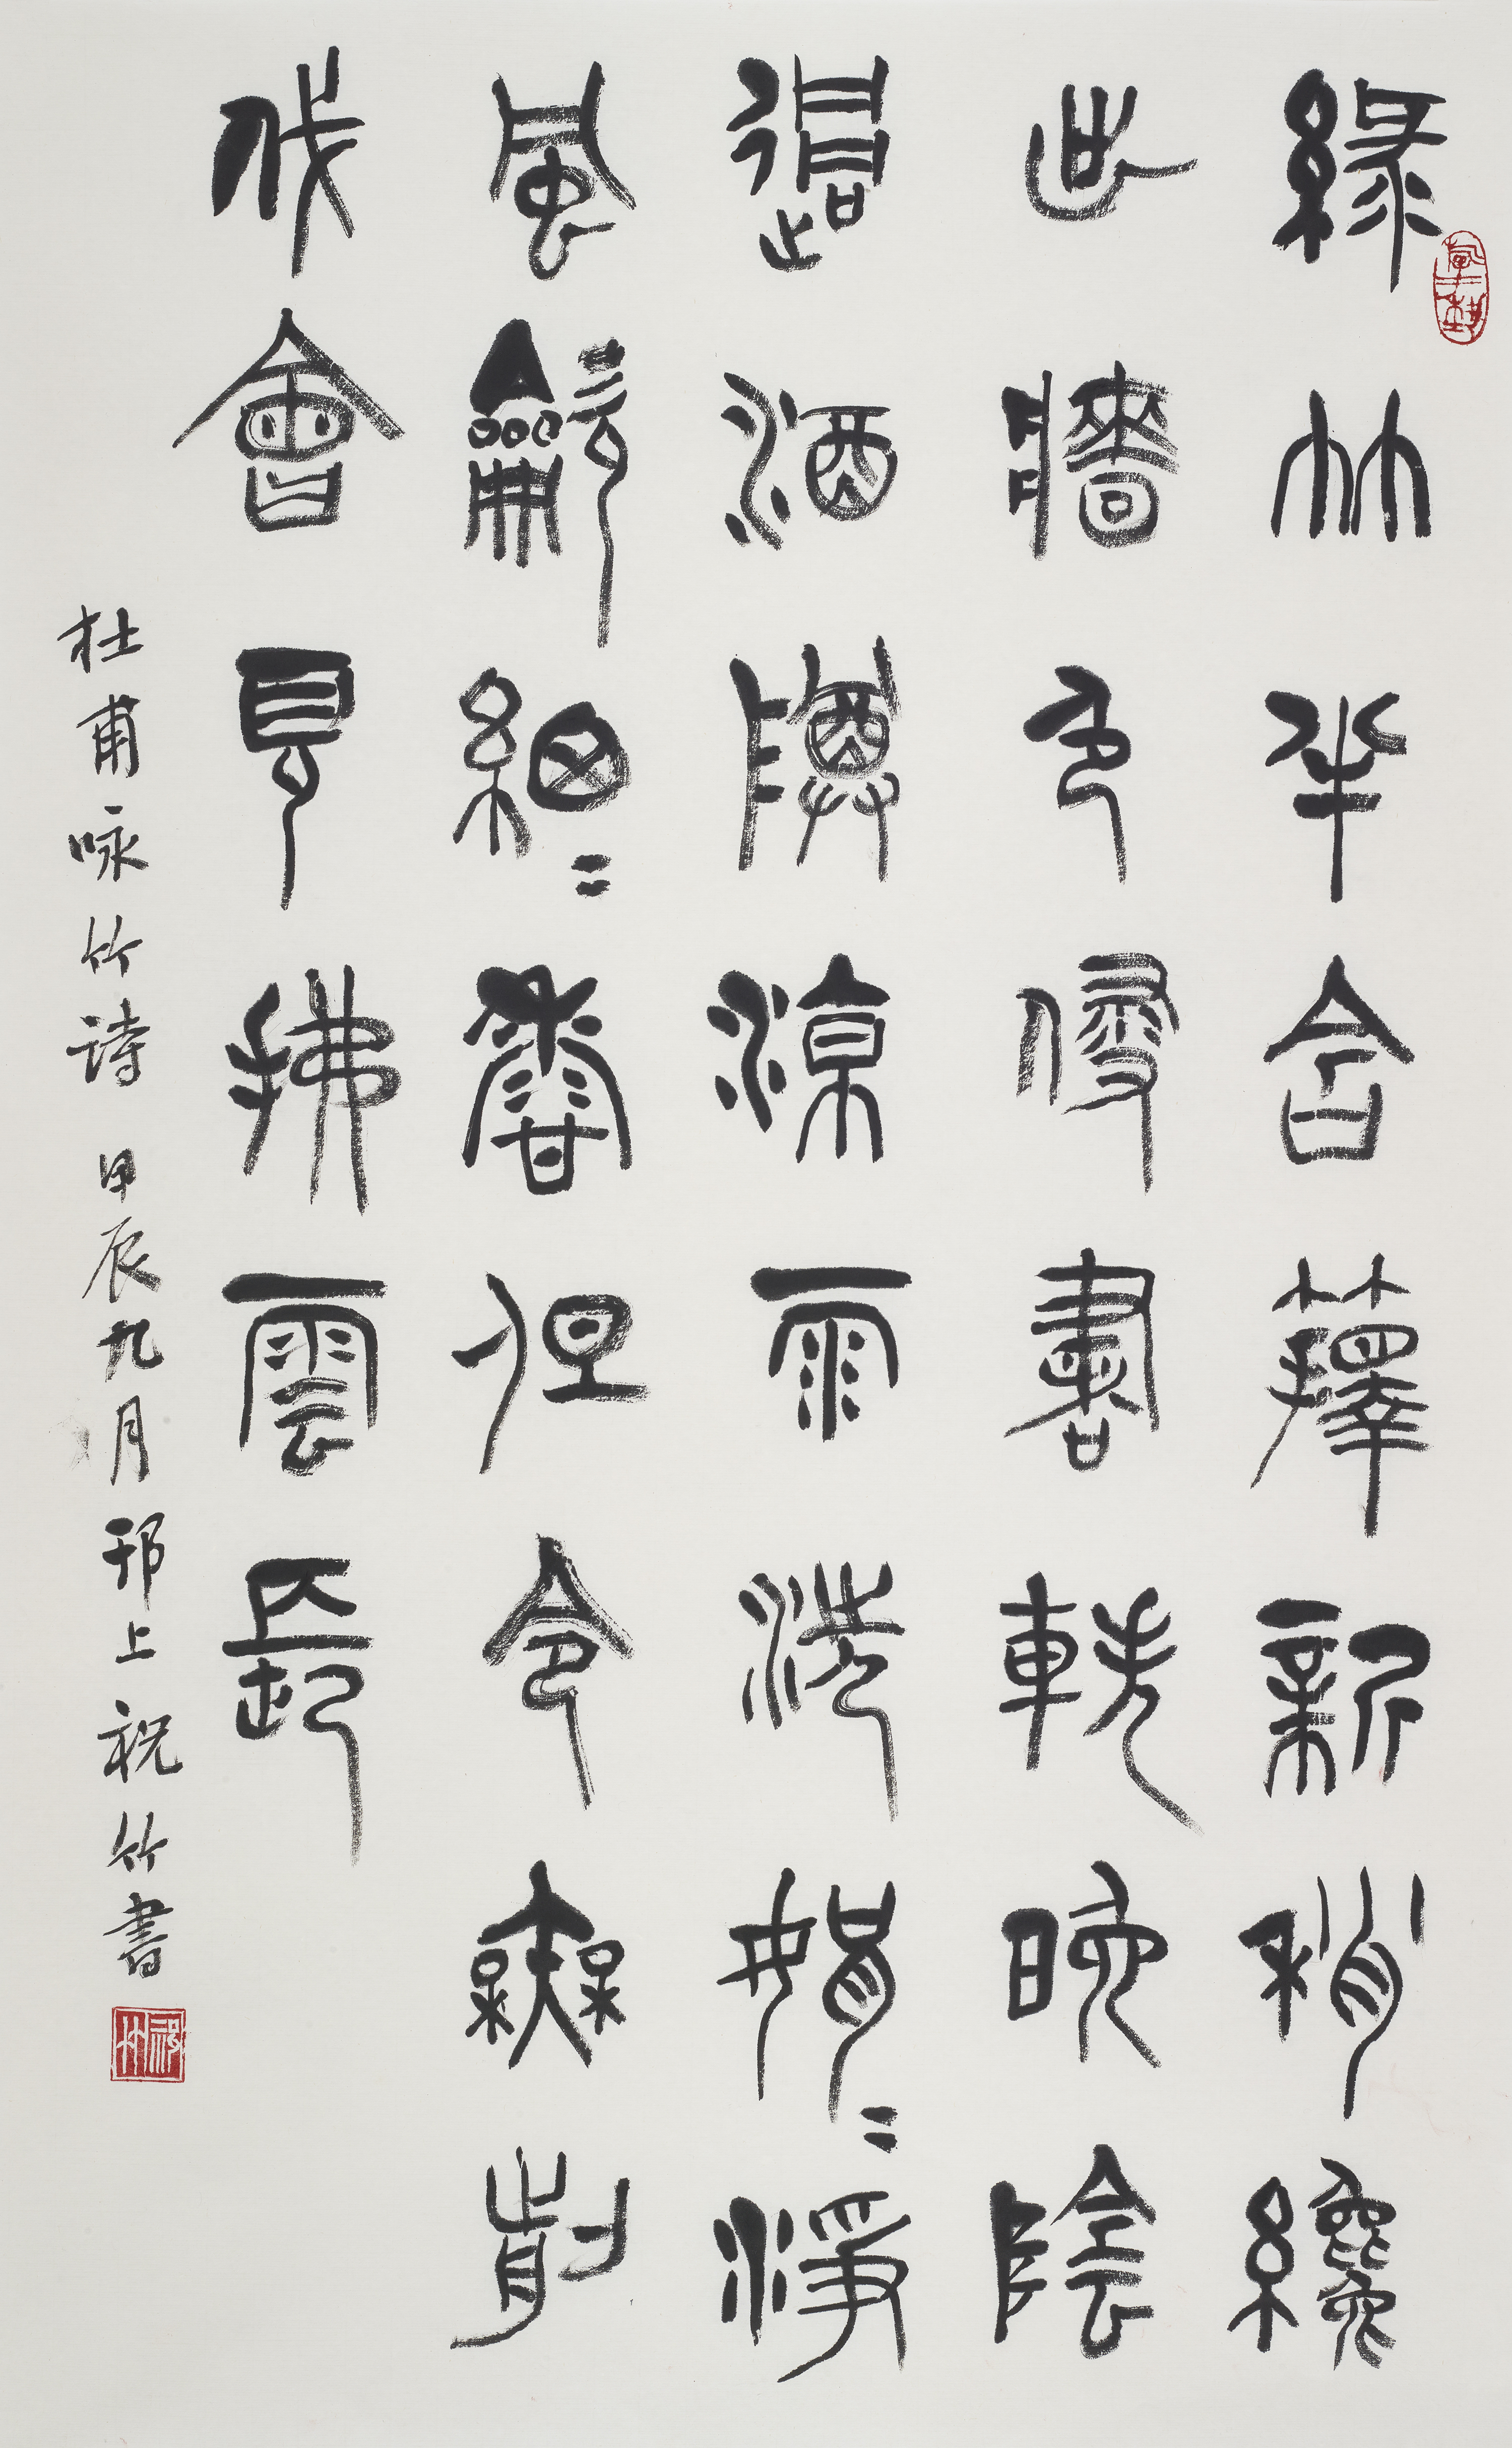 緑竹半含籜新梢纔
出牆色侵書軼晚陰
過酒樽涼雨洗娟〻淨
風龡細〻香但令無剪
伐會見拂雲長
杜甫咏竹诗 甲辰九月邗上祝竹書
祝竹